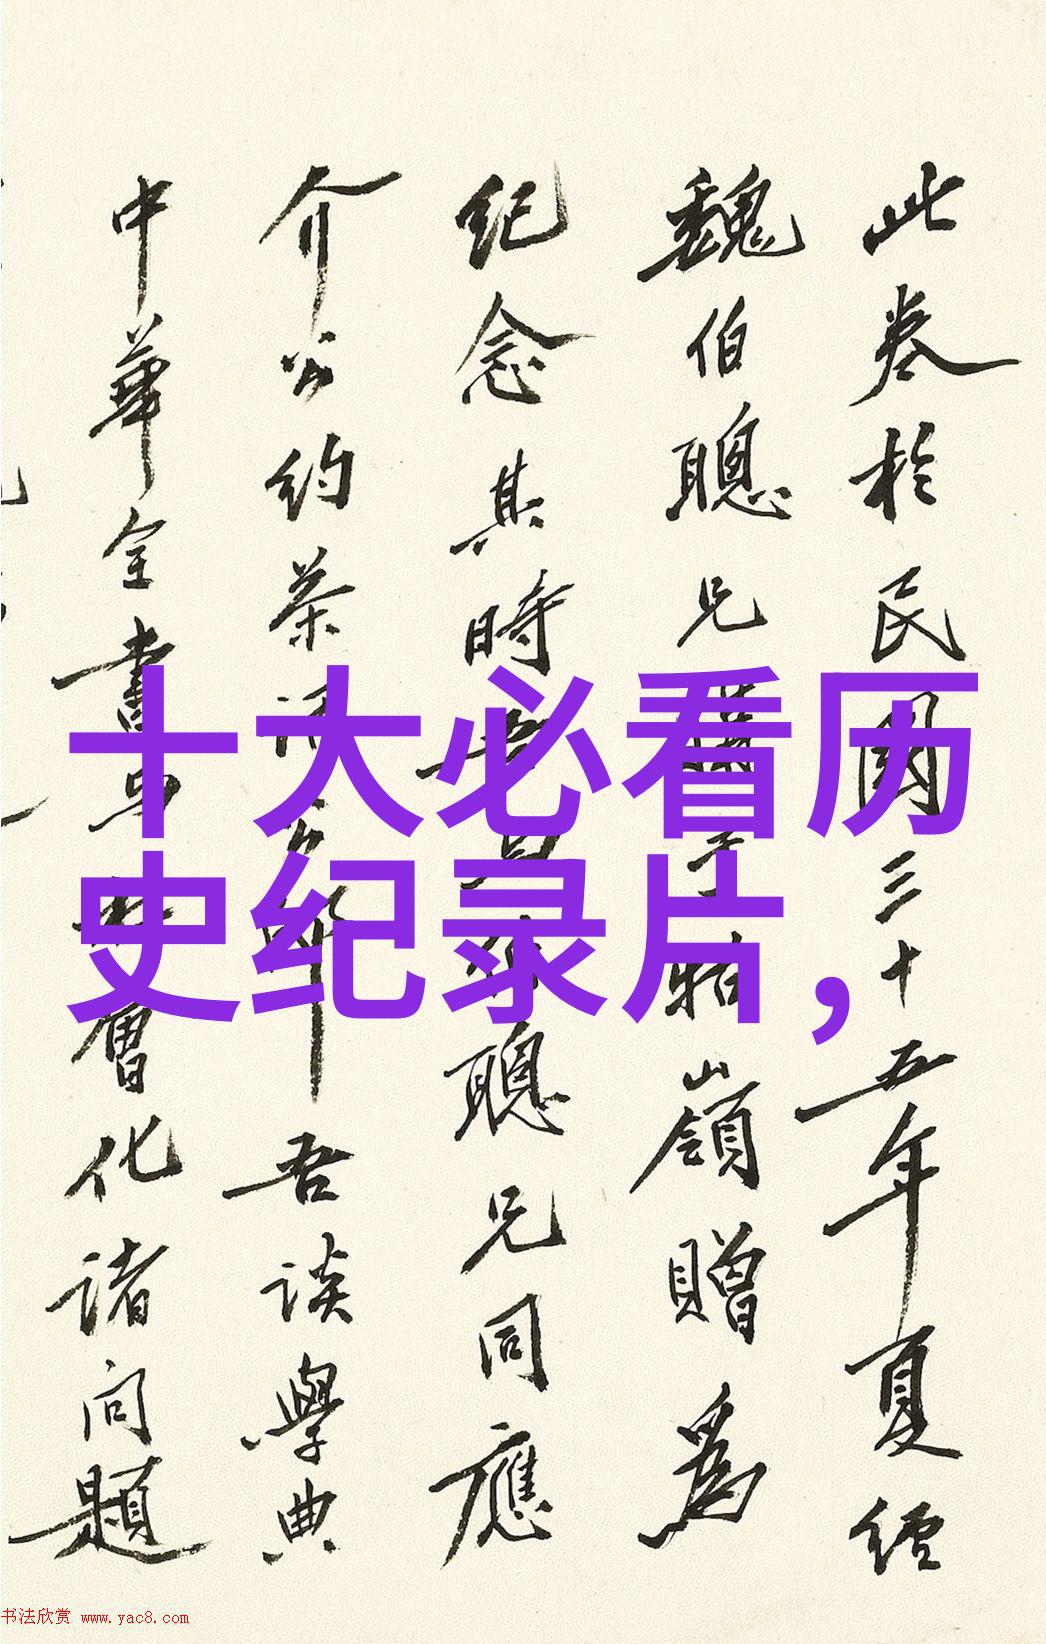 此卷於民國三十五年夏經
魏伯聰兄攜于牯嶺贈為
紀念其時吾與伯聰兄同應
介公約茶話
吾談學典
中華全書與
會化諸问題
十大必看历
史纪录片，
书法欣赏 www.yac8.com